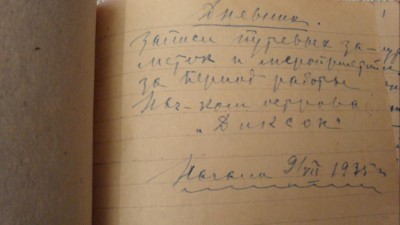 Дневник.
Записи путевых за-
меток и мероприятий
за период работы
Нач-ком острова
„Диксон"
Начато 9/VII 1935 г.